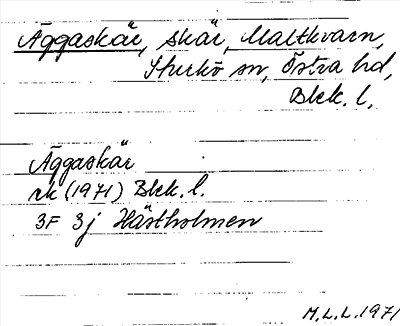 Äggaskär, skär, Maltkvarn,
Sturkö sn, Östra hd,
Blek. l.
Äggaskär
rk (1971) Blek. l.
3F 3j Hästholmen
M.L.L. 1971